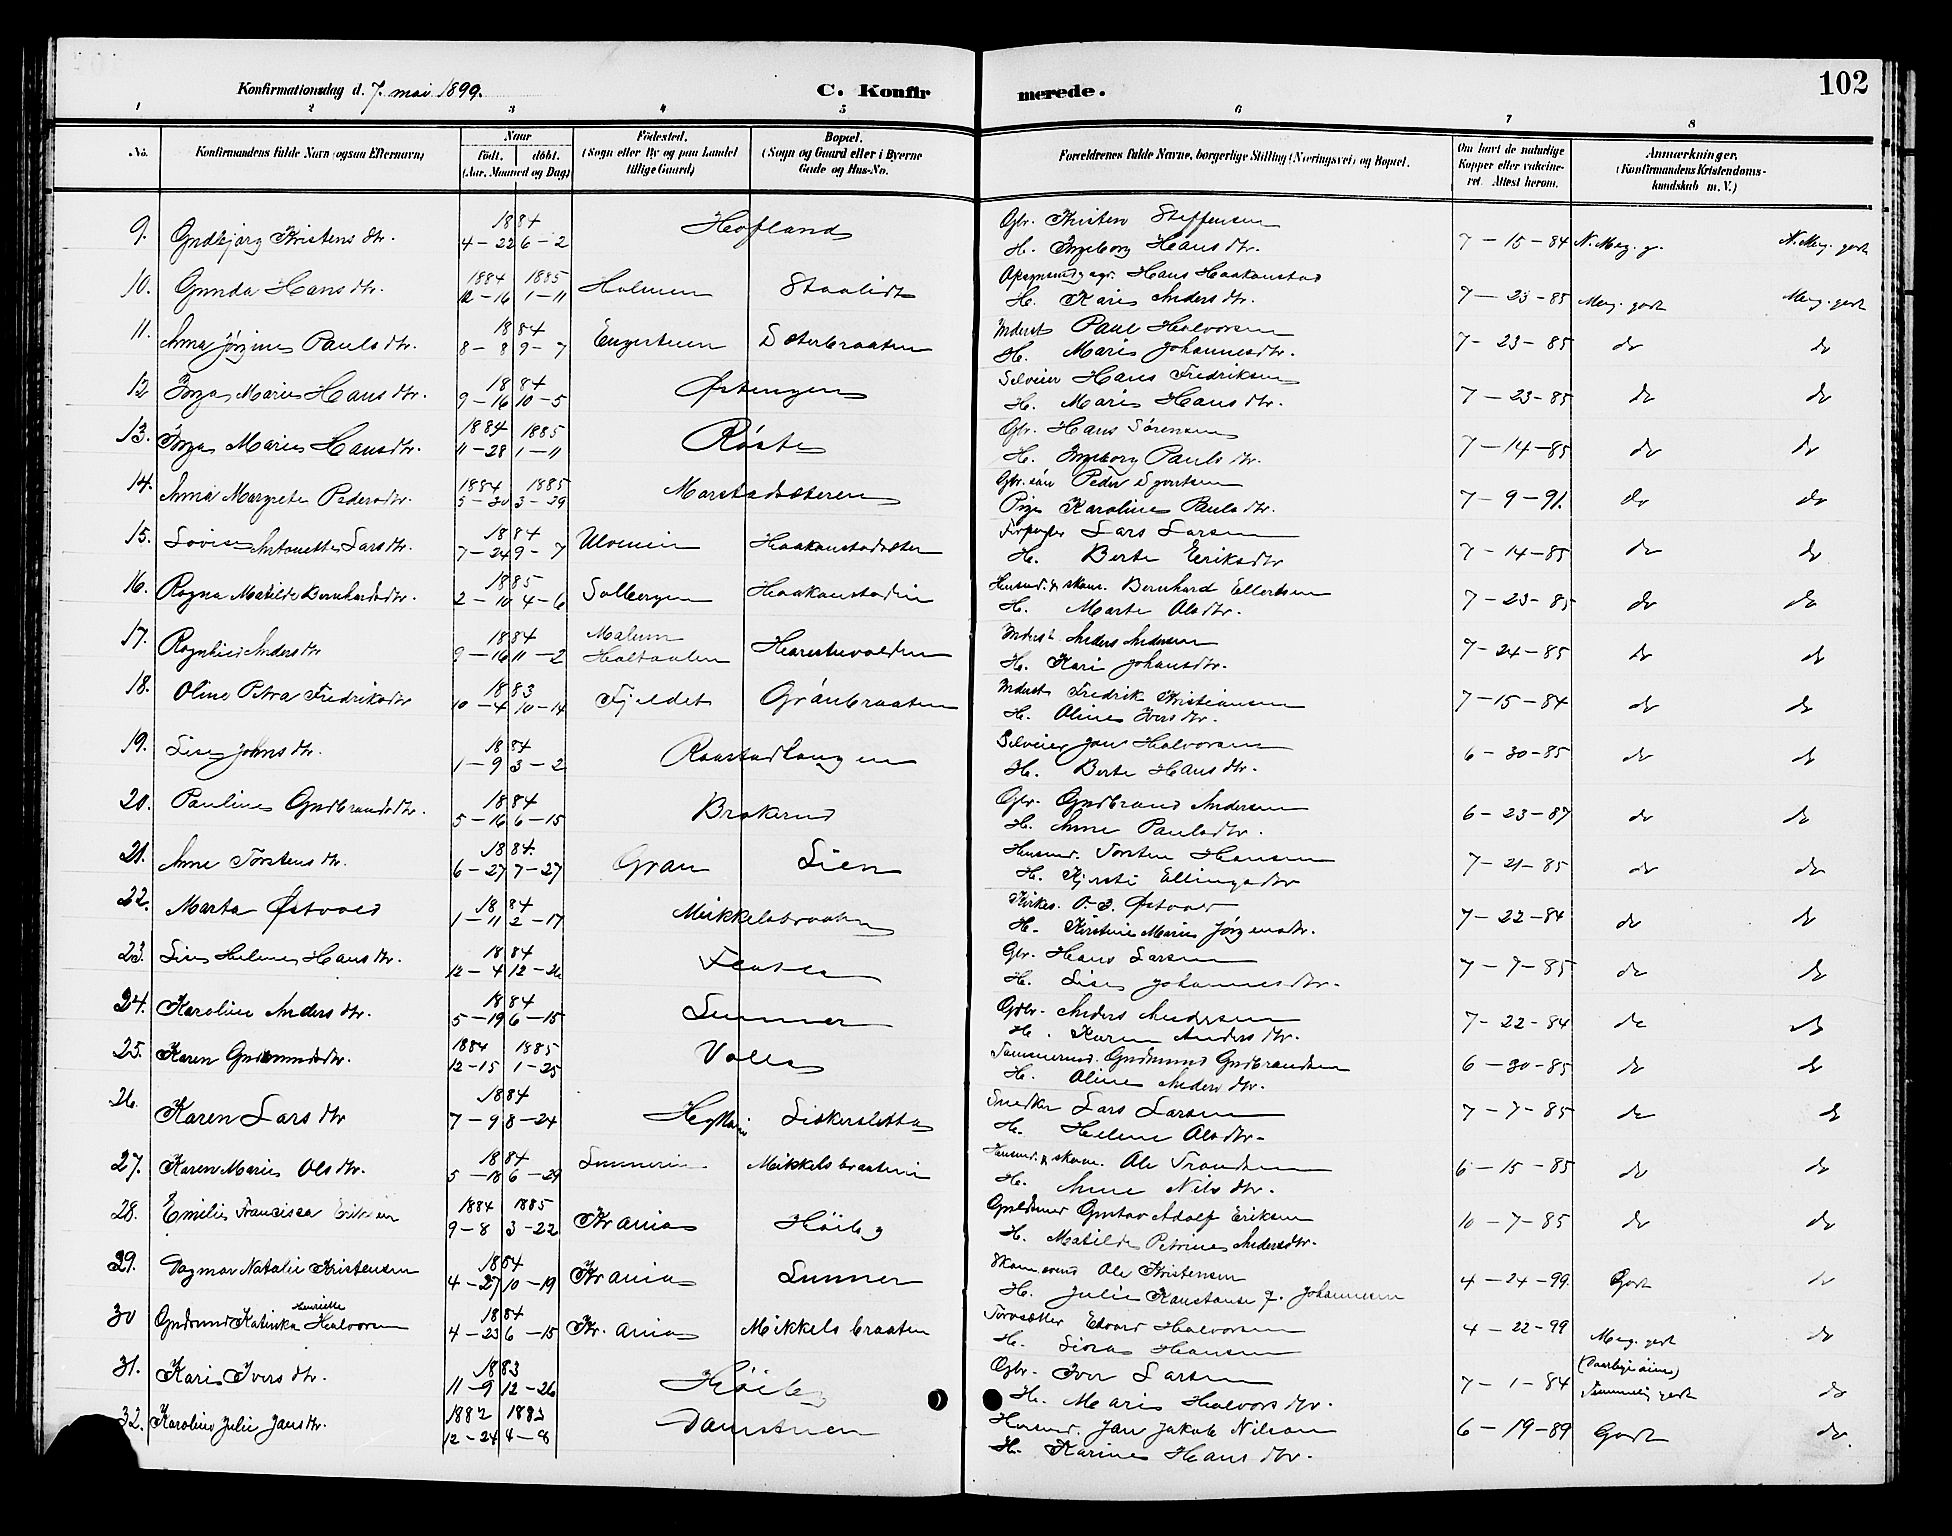 102
Konfirmationsdag d. 7. mai 1899. C. Konfirmerede.
1 2 3 4 5 6 7 8
No. Konfirmandens fulde Navn (ogsaa Efternavn) Naar födt. döbt. (Aar, Maaned og Dag) Födested. (Sogn eller By og paa Landet tillige Gaard) Bopæl. (Sogn og Gaard eller i Byerne Gade og Hus-No. Forældrenes fulde Navne, borgerlige Stilling (Næringsvei) og Bopæl. Om havt de naturlige Kopper eller vakcineret. Attest herom. Anmærkninger. (Konfirmandens Kristendomskundskab m. V.)
9. Gudbjørg Kristensdtr. 1884 4-22 6-2 Hofland Gbr. Kristen Steffensen
H. Ingeborg Hansdtr. 7-15-84 N. Meg. g. N. Meg. godt
10. Gunda Hansdtr. 1884 12-16 1885 1-11 Holmen Staalidt Hans Haakonstad
H. Kari Andersdtr. 7-23-85 Meg. godt Meg. godt
11. Anna Jørgine Paulsdtr. 1884 8-8 9-7 Engestuen Sæterbraaten Inderst Paul Halvorsen
H. Mari Johannesdtr. 7-23-85 do do
12 Inga Marie Hansdtr. 1884 9-16 10-5 Østengen Selveier Hans Fredriksen
H. Mari Hansdtr. 7-23-85 do do
13. Inga Marie Hansdtr. 1884 11-28 1885 1-11 Røste Gbr. Hans Sørensen
H. Ingeborg Paulsdtr. 7-14-85 do do
14. Anna Margrete Pedersdtr. 1884 5-30 1885 3-29 Morstadsæteren Gbr. søn Peder Syvertsen
Pige Karoline Paulsdtr. 7-9-91. do do
15. Lovise Antonette Larsdtr. 1884 7-24 9-7 Ulvenin Haakonstadsæter Forpagter Lars Larsen
H. Berte Eriksdtr 7-14-85 do do
16. Ragna Matilde Bernhardsdtr. 1885 2-10 4-6 Solbergen Haakonstadeie Husmd. & skom. Bernhard Ellertsen
H. Marte Olsdtr. 7-23-85 do do
17. Ragnhild Andersdtr 1884 9-16 11-2 Malum Holtaalen Harestuvolden Inderst Anders Andersen
H. Kari Johansdtr. 7-24-85 do do
18. Oline Petra Fredriksdtr 1883 10-4 10-14 Fjeldet Grånbraaten Inderst Fredrik Kristiansen
H. Oline Iversdtr. 7-15-84 do do
19. Lise Johnsdtr. 1884 1-9 3-2 Raastadhaugen Selveier Jon Halvorsen
H. Berte Hansdtr. 6-30-85 do do
20. Pauline Gudbrandsdtr. 1884 5-16 6-15 Brakerud Gbr. Gudbrand Andersen
H. Anne Paulsdtr. 6-23-87 do do
21. Anne Torstensdtr. 1884. 6-27 7-27 Gran Lien Husmd. Torsten Hansen
H. Kjersti Ellingsdtr 7-21-85 do do
22. Marta Østvold 1884 1-11 2-17 Mikkelsbraaten Kirkes. O. J. Østvold
H. Kirstine Marie Jørgensdtr. 7-22-84 do do
23. Lise Helene Hansdtr. 1884 12-4 12-26 Gbr. Hans Larsen
H. Lise Johannesdtr. 7-7-85 do do
24. Karoline Andersdtr. 1884 5-19 6-15 Lunner Gdbr. Anders Andersen
H. Karen Andersdtr. 7-22-84 do do
25. Karen Gudmundsdtr. 1884 12-15 1885 1-25 Volla Tømmermd. Gudmund Gudbrandsen
H. Oline Andersdtr. 6-30-85 do do
26. Karen Larsdtr 1884 7-9 8-24 Liskersletta Snedker Lars Larsen
H. Helene Olsdtr. 7-7-85 do do
27. Karen Marie Olsdtr. 1884 5-18 6-29 Lunnereie Mikkelsbraateeie Husmd. & skom. Ole Trondsen
H. Anne Nilsdtr. 6-15-85 do do
28. Emilie Francisca Eriksen 1884 9-8 1885 3-22 Kr.ania Høiby Guldsmed Gustav Adolf Eriksen
H. Matilde Petrine Andersdtr. 10-7-85 do do
29. Dagmar Natalie Kristensen 1884 4-27 10-19 Kr.ania Lunner Skom.svend Ole Kristensen
H. Julie Konstanse f. Johannesen 4-24-99 Godt do
30 Gudrund Katinka Henriette Halvorsen 1884 4-23 6-15 Kr.ania Mikkelsbraaten Edvard Halvorsen
H. Lovise Hansen 4-22-99 Meg. godt do
31. Kari Iversdtr. 1883 11-9 12-26 Høiby Gbr. Iver Larsen
H. Mari Halvorsdtr. 7-1-84 (Daarlige øine) Temmelig godt do
32. Karoline Julie Jansdtr. 1882 12-24 1883 4-8 Damstuen Husmd. Jan Jakob Nilsen
H. Karine Hansdtr. 6-19-89 Godt do.